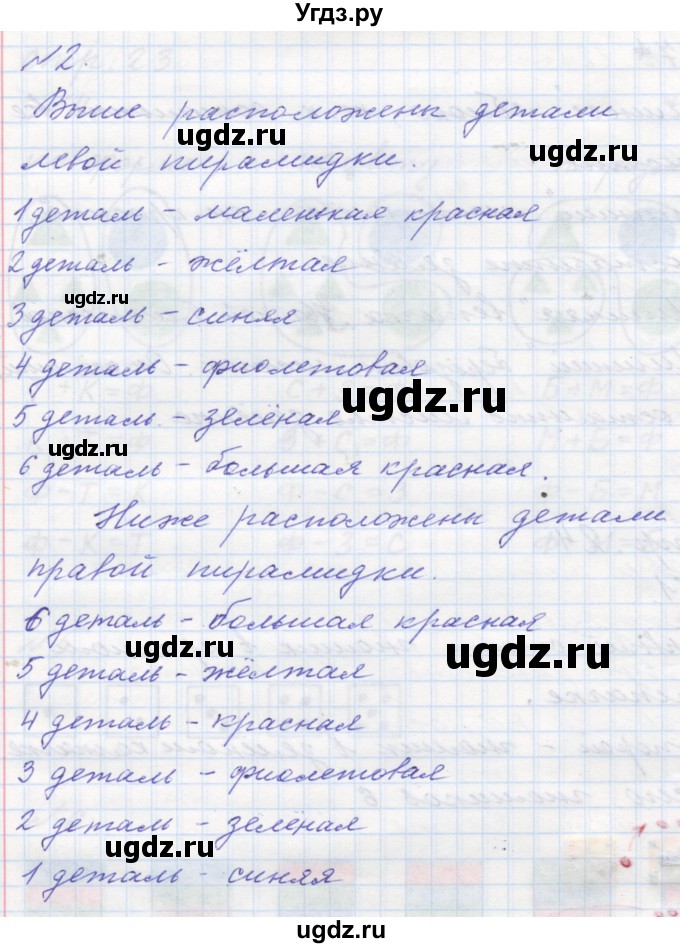 Угдз.ру
№2.
Выше расположены детали
ugdz.ru ugdz.ru
левой пирамидки.
1 деталь - маленькая красная
2 деталь - жёлтая
ugdz.ru
3 деталь - синяя
4 деталь - фиолетовая
ugdz.ru
5 деталь - зелёная
ugdz.ru
6 деталь - большая красная.
Ниже расположены детали
правой пирамидки.
6 деталь - большая красная
ugdz.ru ugdz.ru
5 деталь - жёлтая
4 деталь - красная
3 деталь - фиолетовая
2 деталь - зелёная
ugdz.ru
1 деталь - синяя